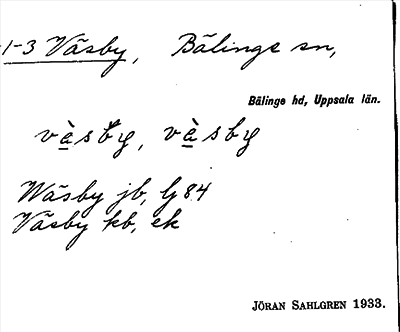 1-3 Väsby, Bälinge sn,
Bälinge hd, Uppsala län.
vä̀sby, vä̀sby
Wäsby jb, lj 84
Väsby kb, ek
JÖRAN SAHLGREN 1933.